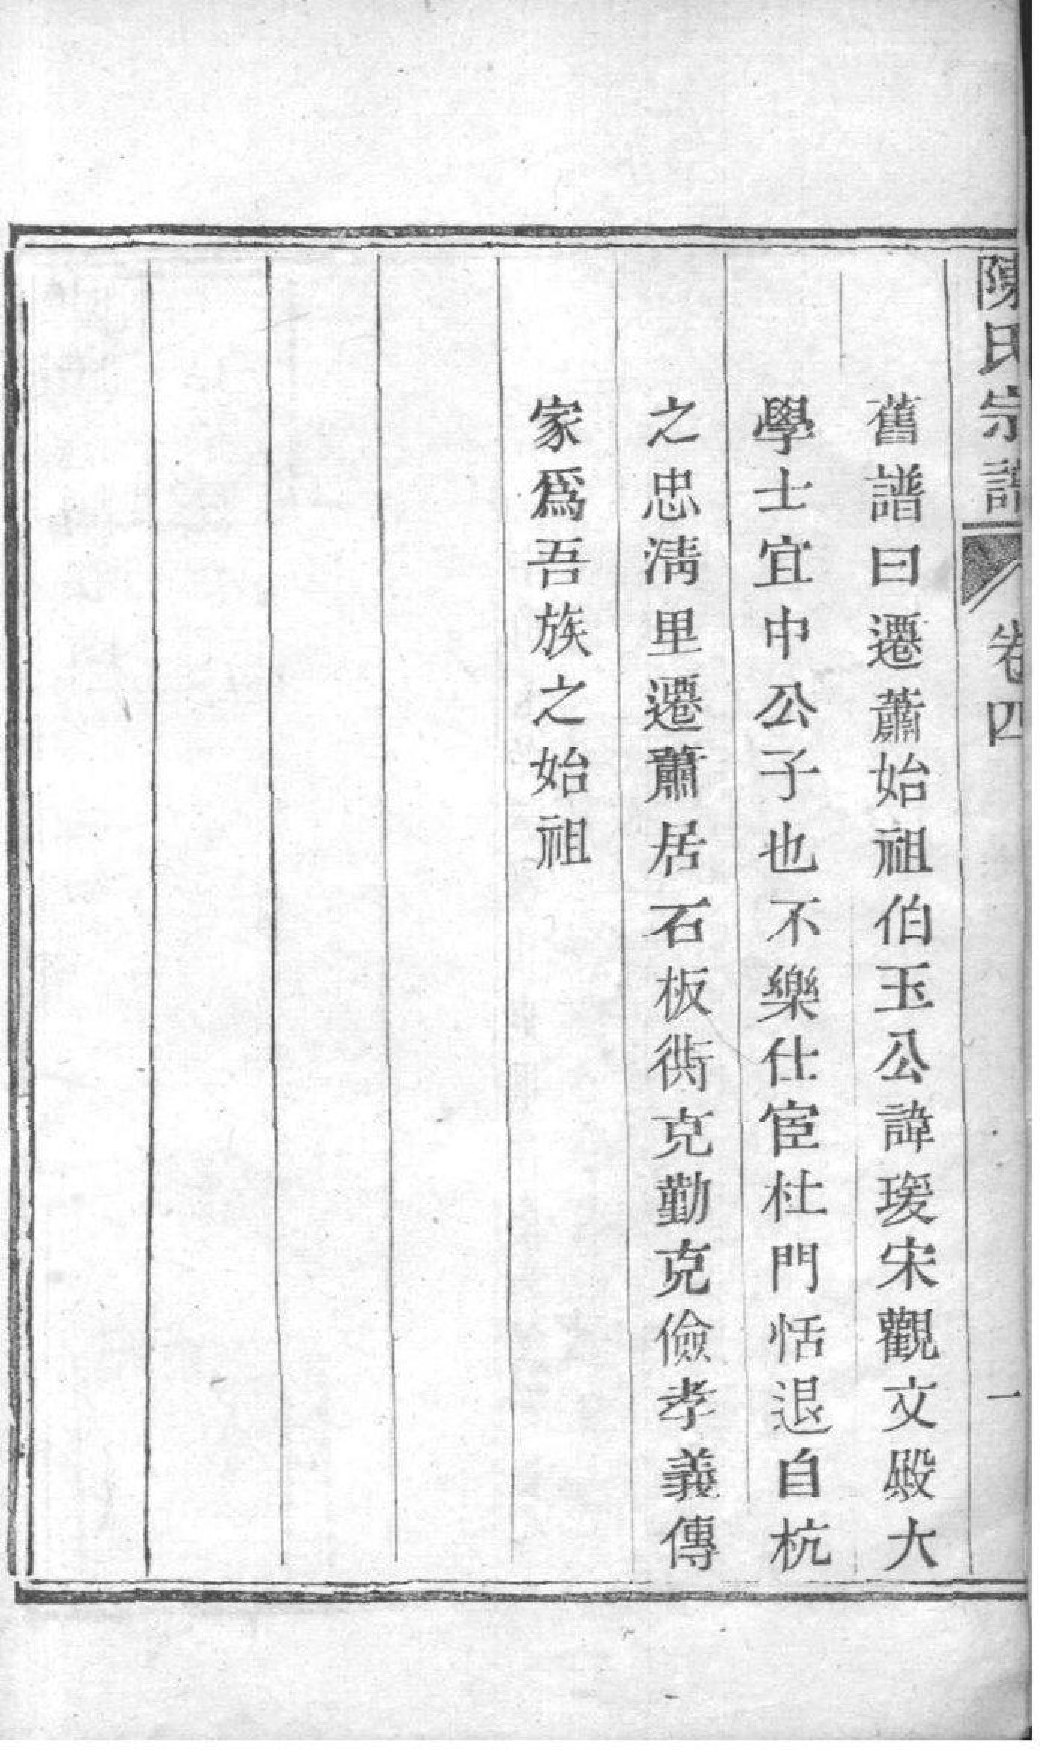 陳氏宗譜
卷四
一
舊譜曰遷蕭始祖伯玉公諱瑗宋觀文殿大
學士宜中公子也不樂仕宦杜門恬退自杭
之忠清里遷蕭居石板衖克勤克儉孝義傳
家爲吾族之始祖